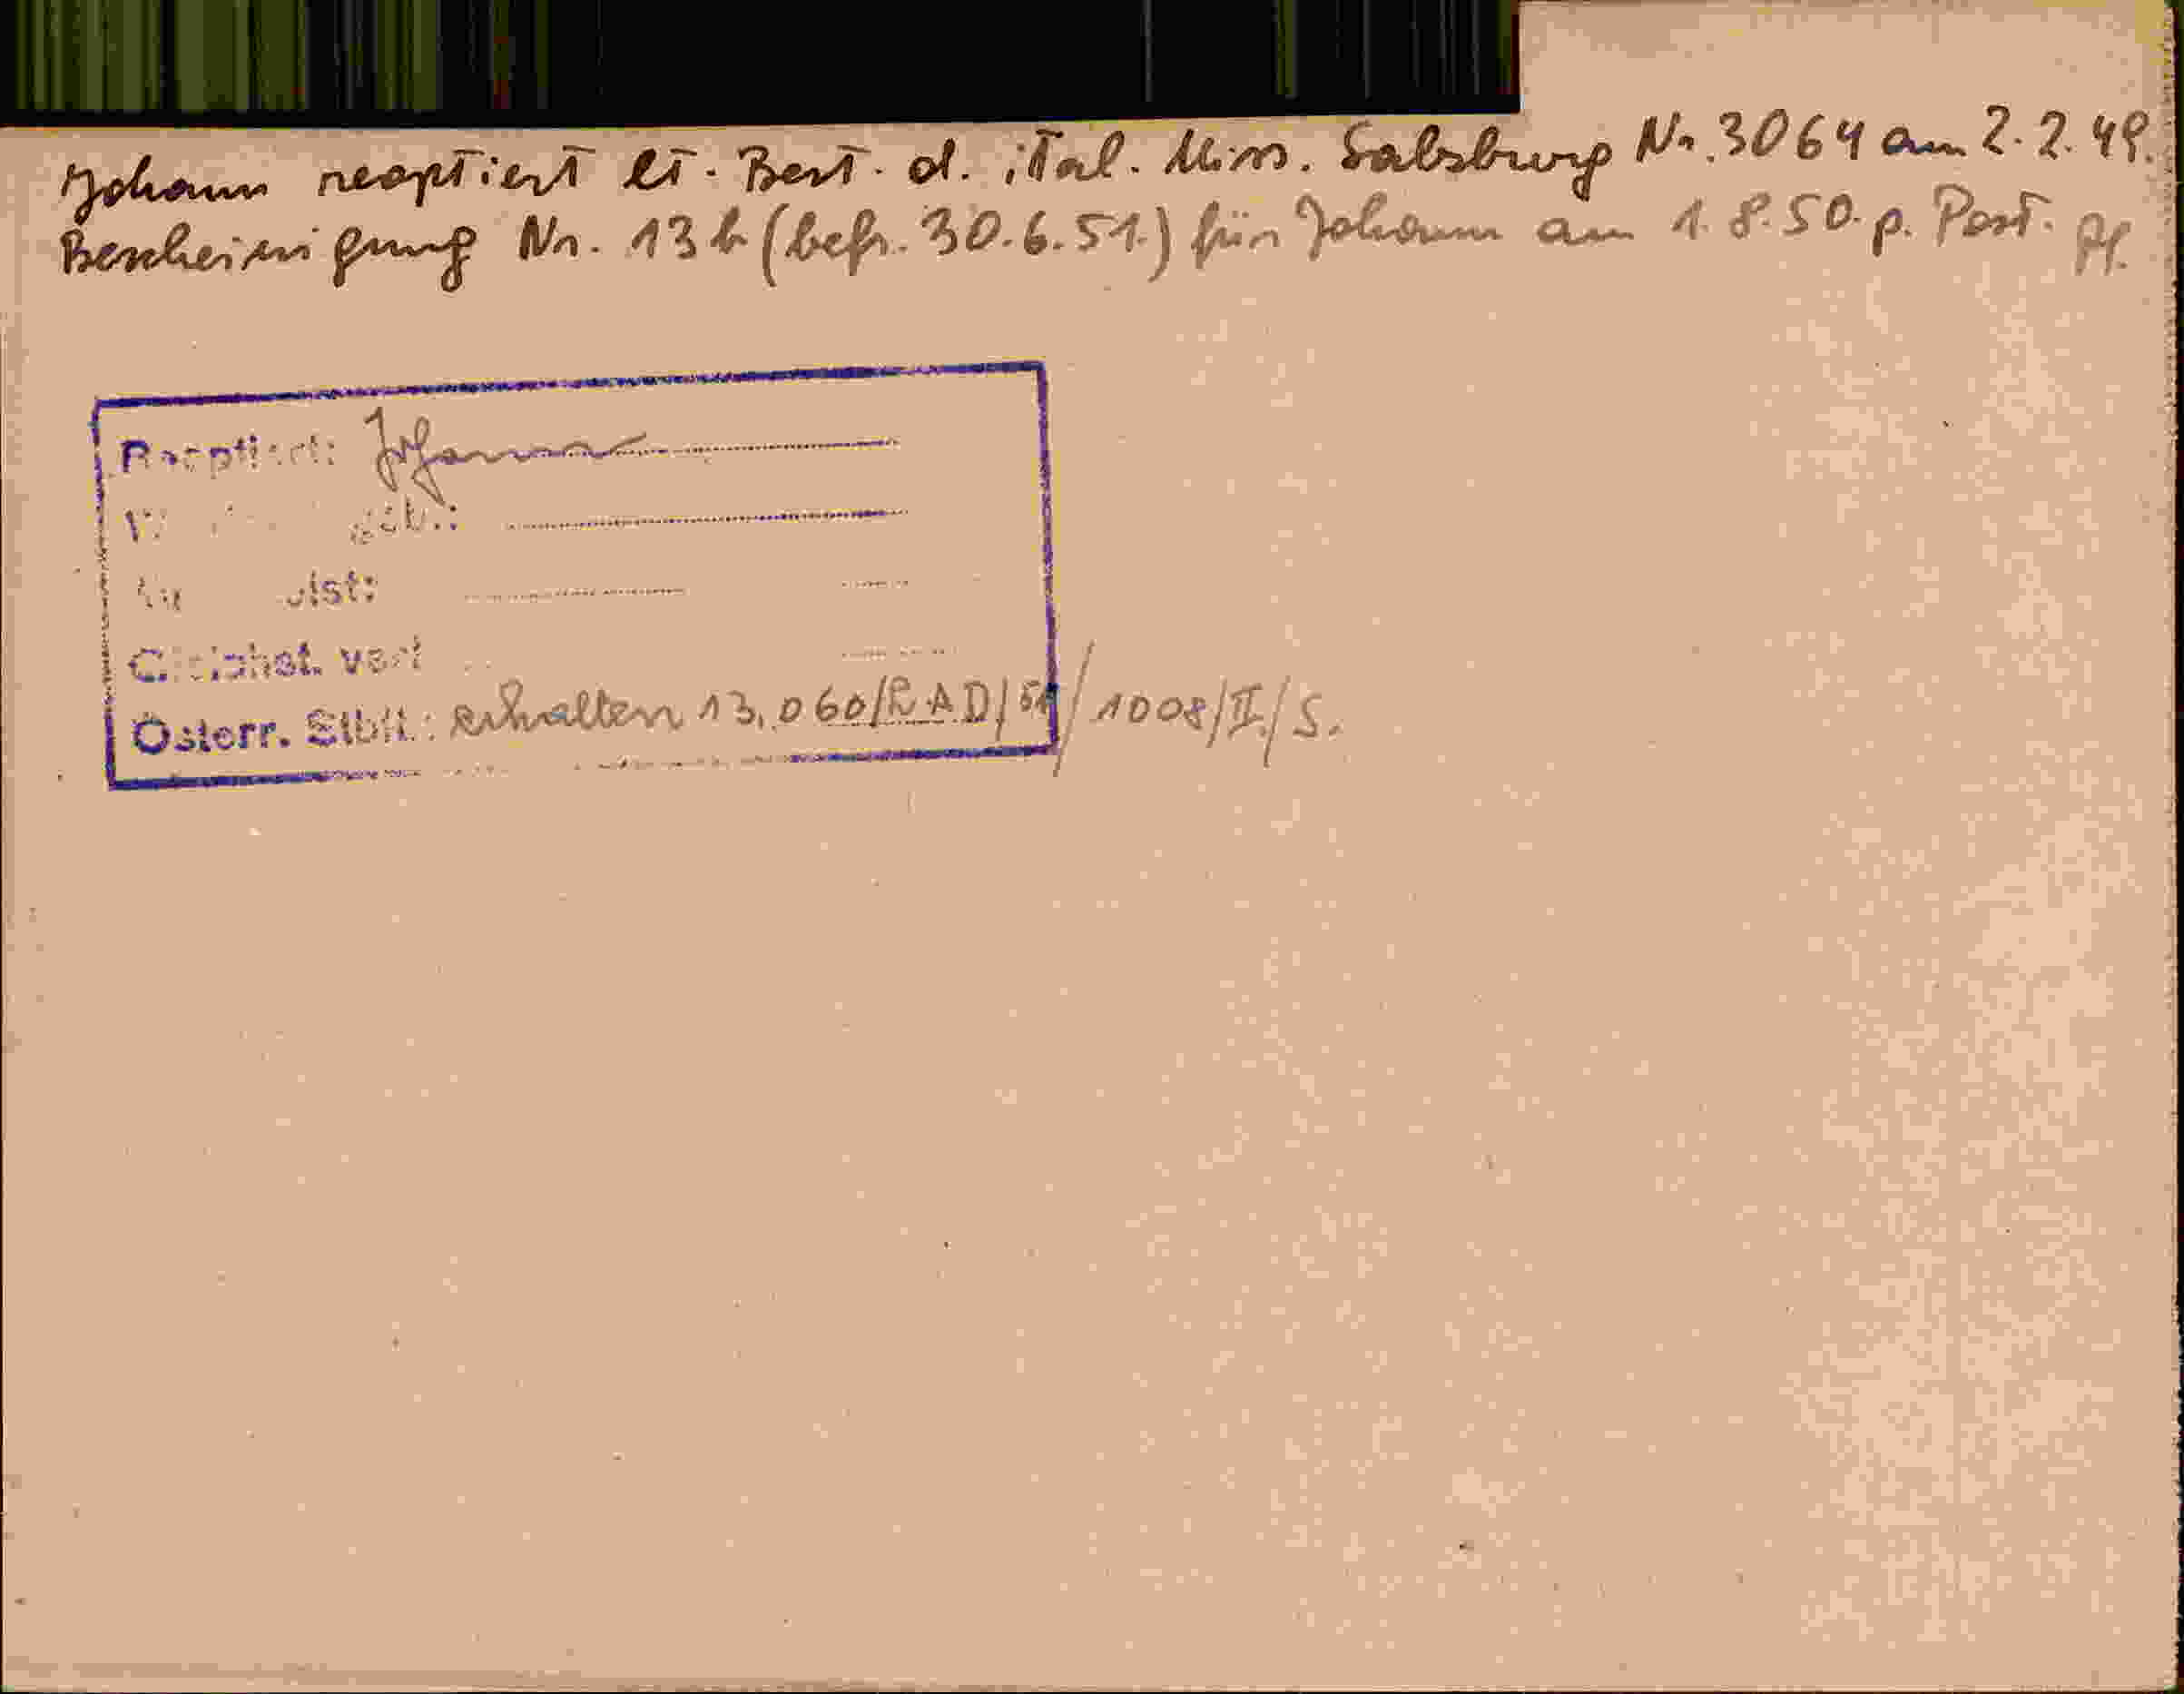 Johann reoptiert lt. Best. d. ital. Miss. Salzburg Nr. 3064 am 2.2.49.
Bescheinigung Nr. 13b (befr. 30.6.51.) für Johann am 1.8.50. p. Post.
Reoptiert: Johann
Österr. Stbft.: erhalten 13.060/RAD/51/1008/II/S.